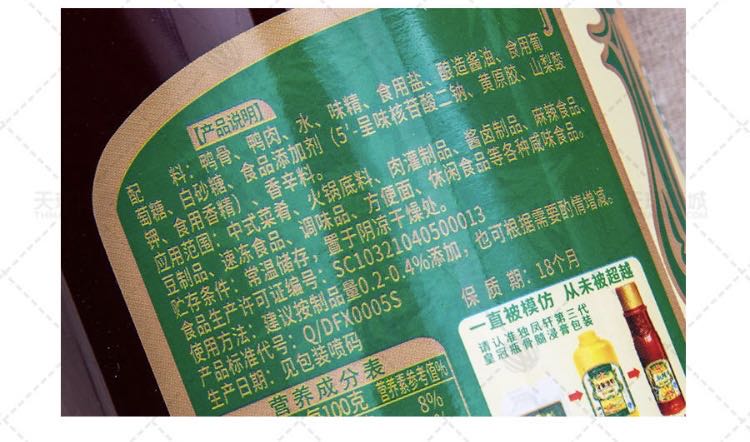 【产品说明】
配 料：鸭骨、鸭肉、水、味精、食用盐、酿造酱油、食用葡
萄糖、白砂糖、食品添加剂（5'-呈味核苷酸二钠、黄原胶、山梨酸
钾、食用香精）、香辛料。
应用范围：中式菜肴、火锅底料、肉灌制品、酱卤制品、麻辣食品、
豆制品、速冻食品、调味品、方便面、休闲食品等各种咸味食品。
贮存条件：常温储存，置于阴凉干燥处。
食品生产许可证编号：SC10321040500013
使用方法：建议按制品量0.2-0.4%添加，也可根据需要酌情增减。
产品标准代号：Q/DFX0005S
保 质 期：18个月
生产日期：见包装喷码
营养成分表
每100克
营养素参考值%
8%
一直被模仿 从未被超越
请认准独凤轩第三代
皇冠瓶骨髓浸膏包装